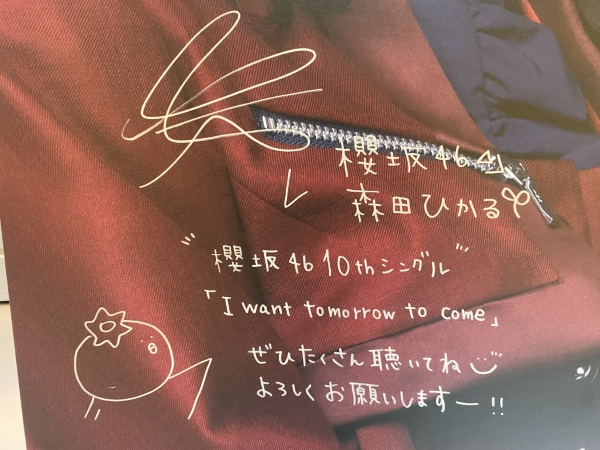 櫻坂46
森田ひかる
櫻坂46 10thシングル
「I want tomorrow to come」
ぜひたくさん聴いてね
よろしくお願いしますー!!